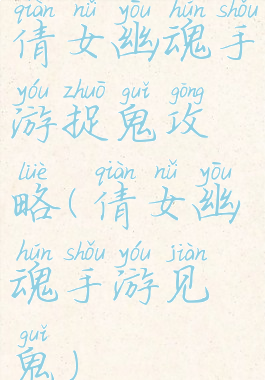 qiàn nǚ yōu hún shǒu
倩女幽魂手
yóu zhuō guǐ gōng
游捉鬼攻
lüè qiàn nǚ yōu
略(倩女幽
hún shǒu yóu jiàn
魂手游见
guǐ
鬼)